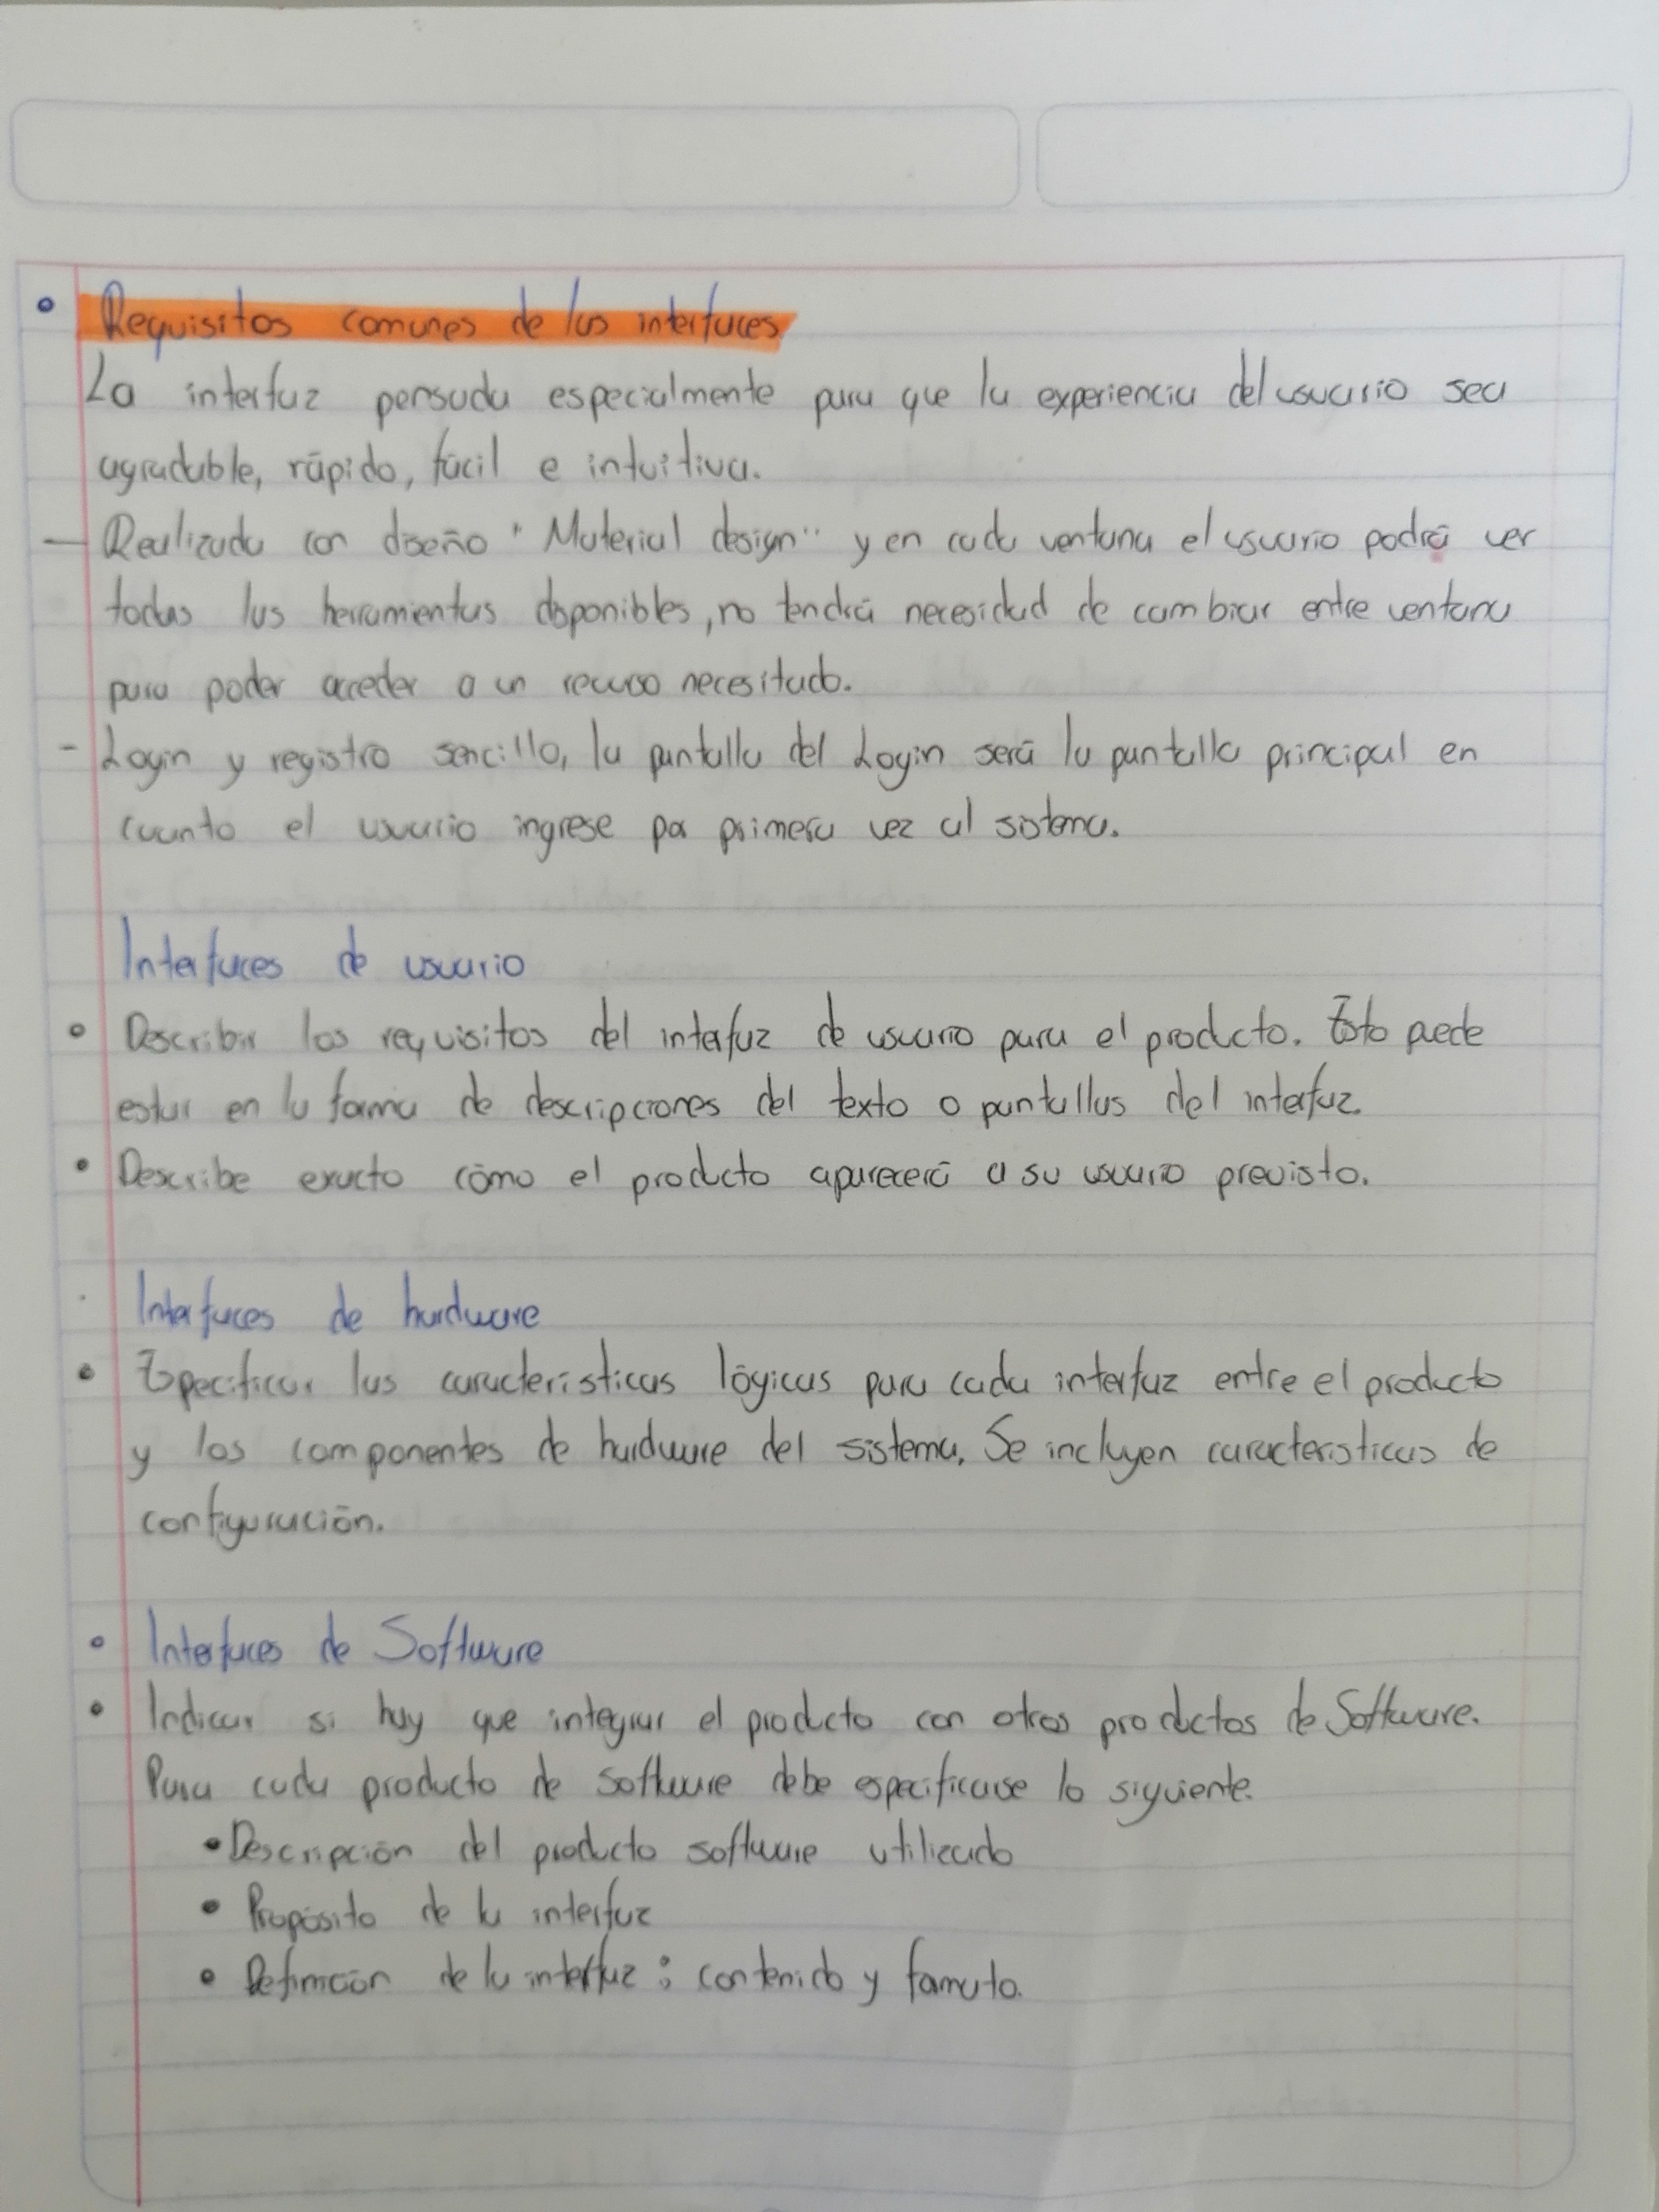 Requisitos comunes de las interfaces.
La interfaz pensada especialmente para que la experiencia del usuario sea
agradable, rápido, fácil e intuitiva.
- Realizada con diseño "Material design" y en cada ventana el usuario podrá ver
todas las herramientas disponibles, no tendrá necesidad de cambiar entre ventana
para poder acceder a un recurso necesitado.
- Login y registro sencillo, la pantalla del Login será la pantalla principal en
cuanto el usuario ingrese por primera vez al sistema.
Interfaces de usuario
• Describir los requisitos del interfaz de usuario para el producto. Esto puede
estar en la forma de descripciones del texto o pantallas del interfaz.
• Describe exacto cómo el producto aparecerá a su usuario previsto.
Interfaces de hardware
• Especificar las características lógicas para cada interfaz entre el producto
y los componentes de hardware del sistema. Se incluyen características de
configuración.
• Interfaces de Software
• Indicar si hay que integrar el producto con otros productos de Software.
Para cada producto de software debe especificarse lo siguiente.
• Descripción del producto software utilizado
• Propósito de la interfaz
• Definición de la interfaz: contenido y formato.